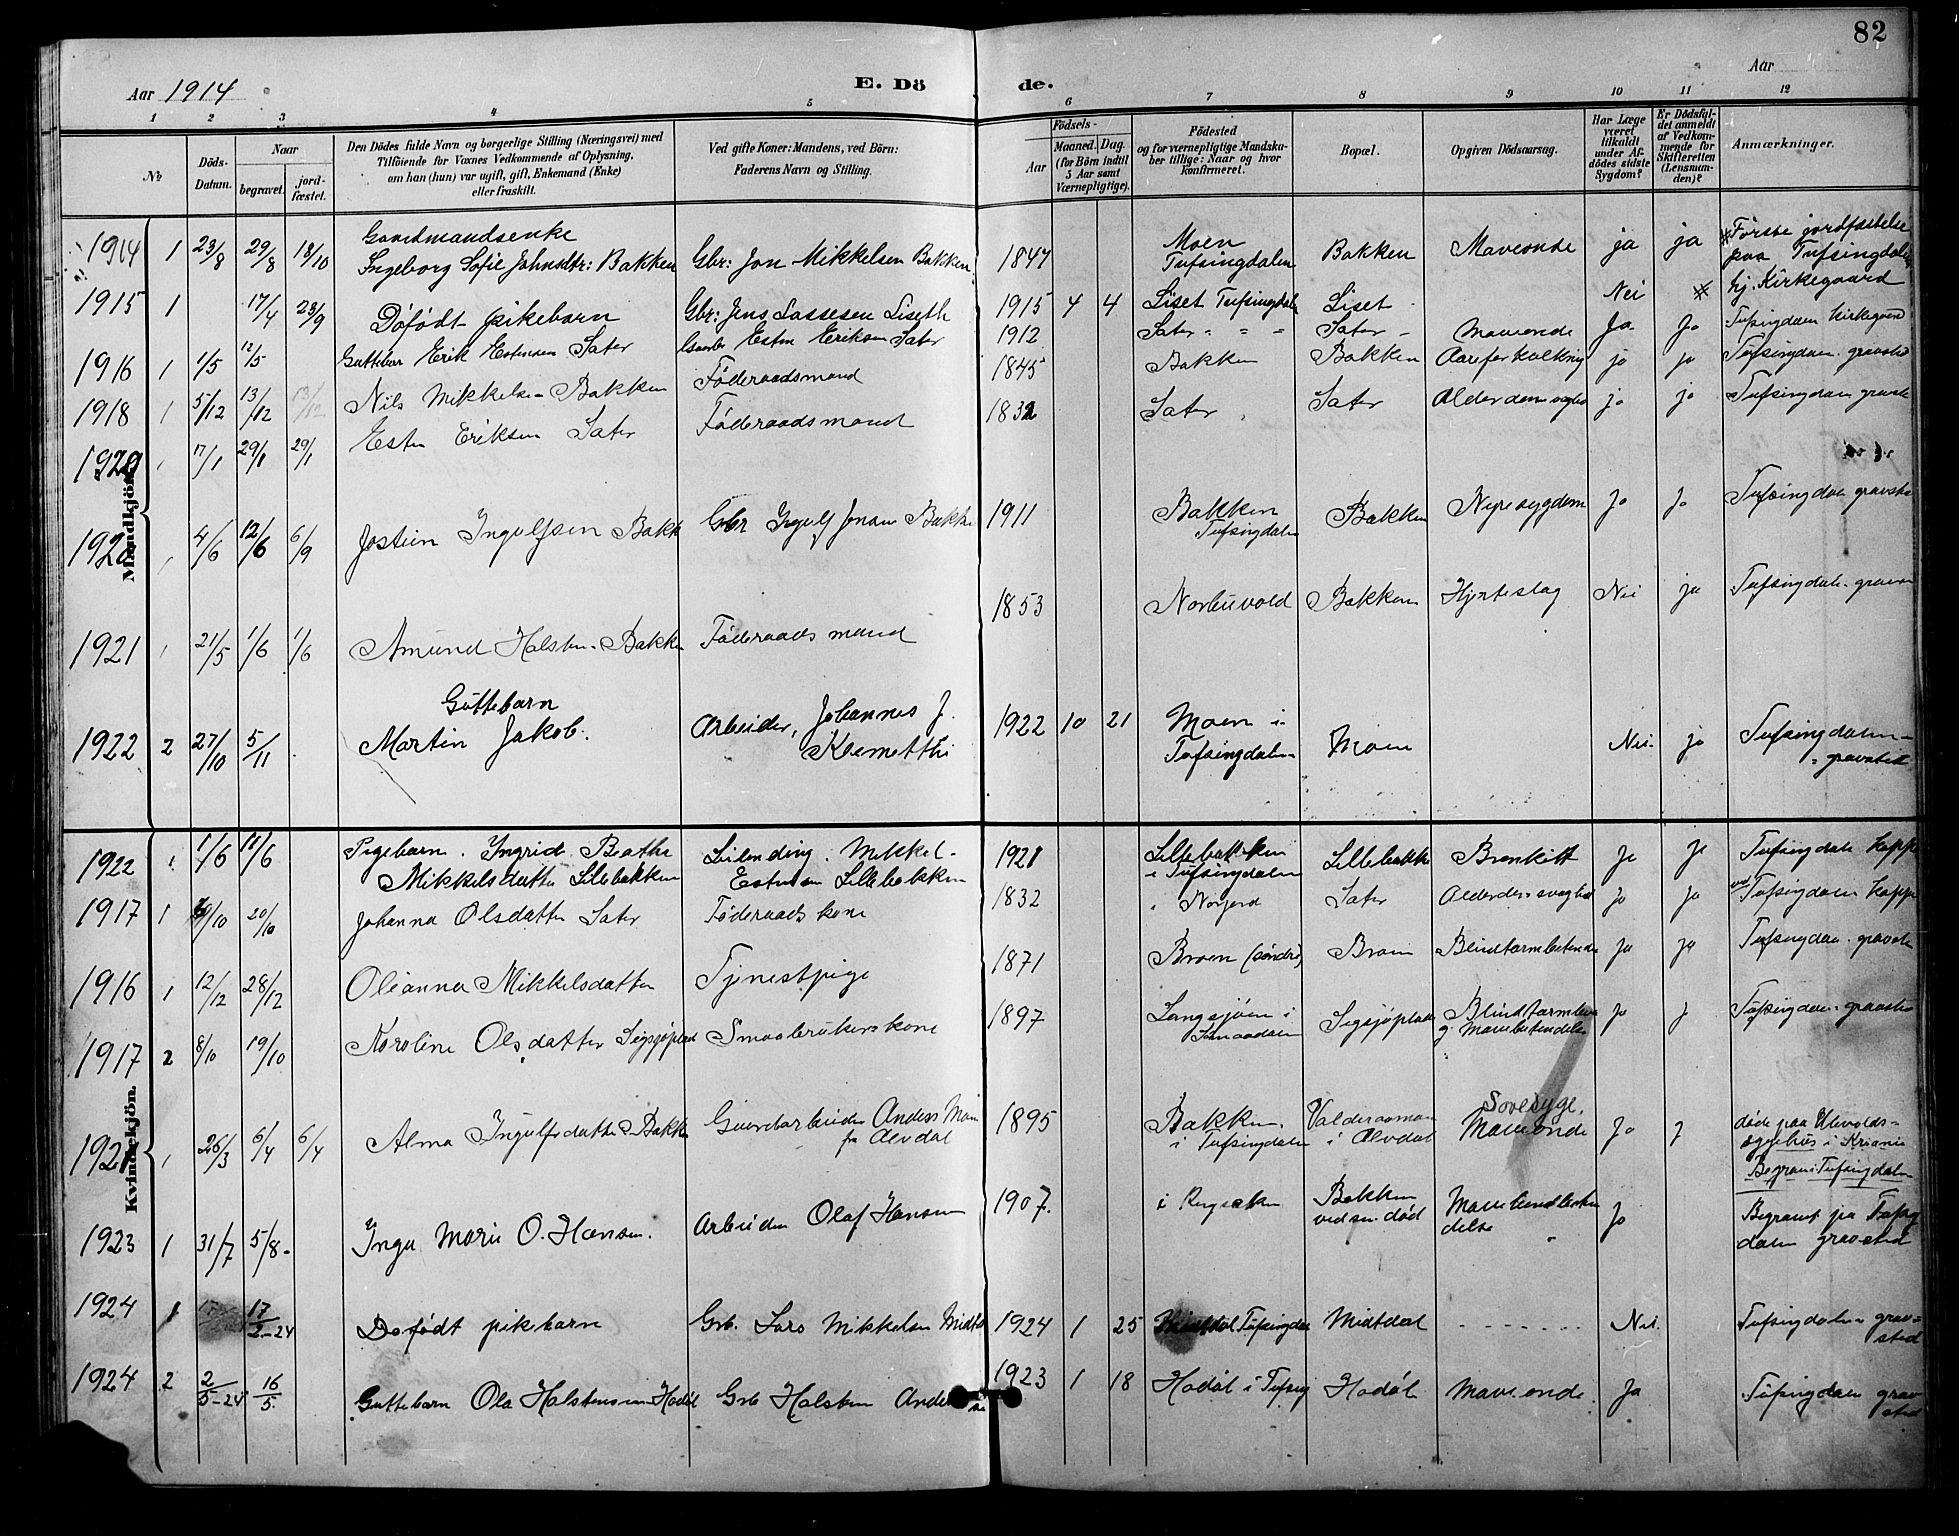 82
Aar 1914
E. Dö
de.
Aar
1 2 3 4 5 6 7 8 9 10 11 12
№
Döds-
Datum.
Naar
begravet.
jord-
fæstet.
Den Dödes fulde Navn og borgerlige Stilling (Næringsvei) med
Tilföiende for Voxnes Vedkommende af Oplysning,
om han (hun) var ugift, gift, Enkemand (Enke)
eller fraskilt.
Ved gifte Koner: Mandens, ved Börn:
Faderens Navn og Stilling.
Födsels-
Aar
Maaned. Dag.
(for Börn indtil
5 Aar samt
Værnepligtige).
Födested
og for værnepligtige Mandska-
ber tillige: Naar og hvor
konfirmeret.
Bopæl.
Opgiven Dödsaarsag.
Har Læge
været
tilkaldt
under Af-
dödes sidste
Sygdom?
Er Dödsfal-
det anmeldt
af Vedkom-
mende for
Skifteretten
(Lensman-
den)?
Anmærkninger.
Mandkjön.
1914 1 23/8 29/8 18/10 Gaardmandsenke
Ingeborg Sofie Johnsdtr: Bakken Gbr: Jon Mikkelsen Bakken 1847 Moen
Tufsingdalen Bakken Maveonde ja ja Første jordfæstelse
paa Tufsingdalen
hj. Kirkegaard
1915 1 17/4 23/9 Döfödt pikebarn Gbr: Jens Lassesen Liseth 1915 4 4 Liset Tufsingdalen Liset Nei
1916 1 1/5 12/5 Guttebar Erik Estensen Sater Gaardbr Esten Eriksen Sater 1912 Sater Sater Maveonde Ja Ja Tufsingdalen Kirkegaard
1918 1 5/12 13/12 13/12 Nils Mikkelsen Bakken Föderaadsmand 1845 Bakken Bakken Aareforkalkning ja ja Tufsingdalen gravsted
1920 17/1 29/1 29/1 Esten Eriksen Sater Föderaadsmand 1832 Sater Sater ja ja Tufsingdalen gravsted
1920 4/6 12/6 6/9 Jostein Ingulfsen Bakk Gbr Ingulf Jonsen Bakke 1911 Bakken
Tufsingdalen Bakken Nyresygdom Jo Jo Tufsingdalen gravsted
1921 21/5 1/6 1/6 Amund Halsten. Bakken Föderaadsmand 1853 Norbuvold Bakken Hjerteslag Nei ja Tufsingdalen gravsted
1922 2 27/10 5/11 Guttebarn
Martin Jakob. Arbeider, Johannes J. 1922 10 21 Moen i
Tufsingdalen Moen Nei. jo Tufsingdalen
gravsted
Kvindekjön.
1922 1/6 11/6 Pigebarn. Ingrid Beathe
Mikkelsdatter Lillebakken Leilending. Mikkel
Estensen Lillebakken 1921 Lillebakken
i Tufsingdalen Lillebakke Bronkitt Ja Ja Tufsingdalen kappel
1917 1 20/10 Johanna Olsdatter Sater Föderaadskone 1832 Sater Alderdomssvaghed Jo Ja Tufsingdalen kappel
1916 1 12/12 28/12 Oleanna Mikkelsdatter Tjenestpige 1871 Broen (söndre) Broen Blindtarmbetendelse Ja Ja Tufsingdalen gravsted
1917 2 8/10 19/10 Karoline Olsdatter Sigsjöplad Smaabrukerskone 1897 Langsjöen i
Sömaadalen Sigsjöplad Blindtarmbe
g. Mavebetendelse Jo J Tufsingdalen gravsted
1921 26/3 6/4 6/4 Alma Ingulfsdatter Bakke Gaardarbeider Anders Moen
fra Alvdal 1895 Bakken
i Tufsingdalen
i Alvdal Sovesyge,
Maveonde Jo J döde paa Ulevolds-
sygehus i Kriania
Begrav. i Tufsingdalen
1923 1 31/7 5/8 Inga Marie O. Hansen. Arbeider Olaf Hansen 1907. Bakken
ved sin död Jo Begravet på Tufsing
dalen gravsted
1924 1 17/2-24 Dofödt pikebarn Grb. Lars Mikkelsen Midtd 1924 1 25 Midtdal Tufsingdal Midtdal Nei. Tufsingdalen grav-
sted
1924 2 2/5-24 16/5 Guttebarn Ola Halstensen Hodöl Grb Halsten Ander 1923 1 18 Hodöl i Tufsing Hodöl Maveonde Ja Tufsingdalen grav
sted